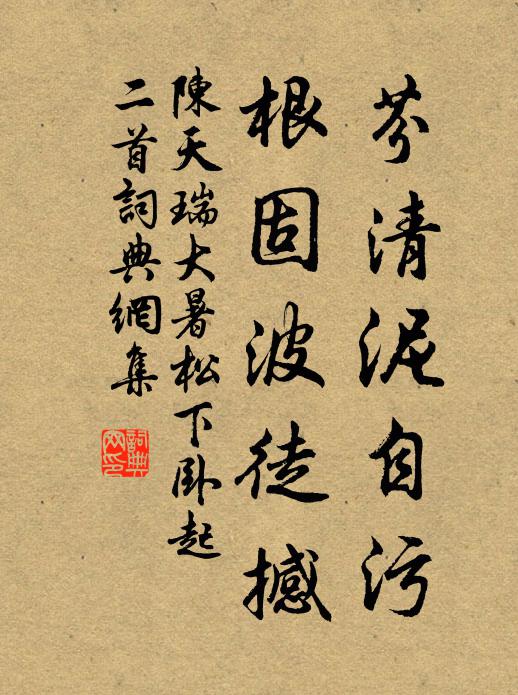 芬清泥自污
根固波徒撼
陳天瑞大暑松下卧起
二首詞典網集
詞典網印